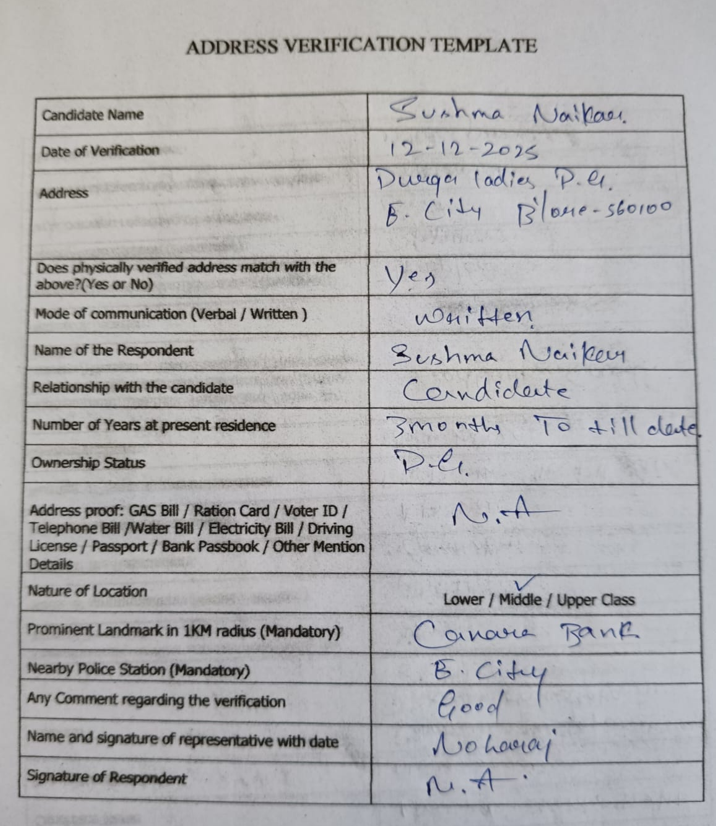 ADDRESS VERIFICATION TEMPLATE
Candidate Name Sushma Naikar.
Date of Verification 12-12-2025
Address Durga ladies P.G.
E. City B'lore-560100
Does physically verified address match with the
above?(Yes or No) Yes
Mode of communication (Verbal / Written ) written
Name of the Respondent Sushma Naikar
Relationship with the candidate Candidate
Number of Years at present residence 3months To till date
Ownership Status P.G.
Address proof: GAS Bill / Ration Card / Voter ID /
Telephone Bill /Water Bill / Electricity Bill / Driving
License / Passport / Bank Passbook / Other Mention
Details N.A
Nature of Location Lower / Middle / Upper Class
Prominent Landmark in 1KM radius (Mandatory) Canara Bank
Nearby Police Station (Mandatory) E. City
Any Comment regarding the verification Good
Name and signature of representative with date
Signature of Respondent N.A.